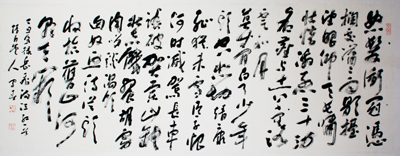 怒髮衝冠憑
欄處瀟瀟雨歇擡
望眼仰天長嘯
壯懷激烈三十功
名塵與土八千里路
雲和月
莫等閒白了少年
頭空悲切靖康
恥猶未雪臣子恨
何時滅駕長車
踏破賀蘭山缺
壯志飢餐胡虜
肉笑談渴飲
匈奴血待從頭
收拾舊山河
朝天闕
岳飛詞滿江紅